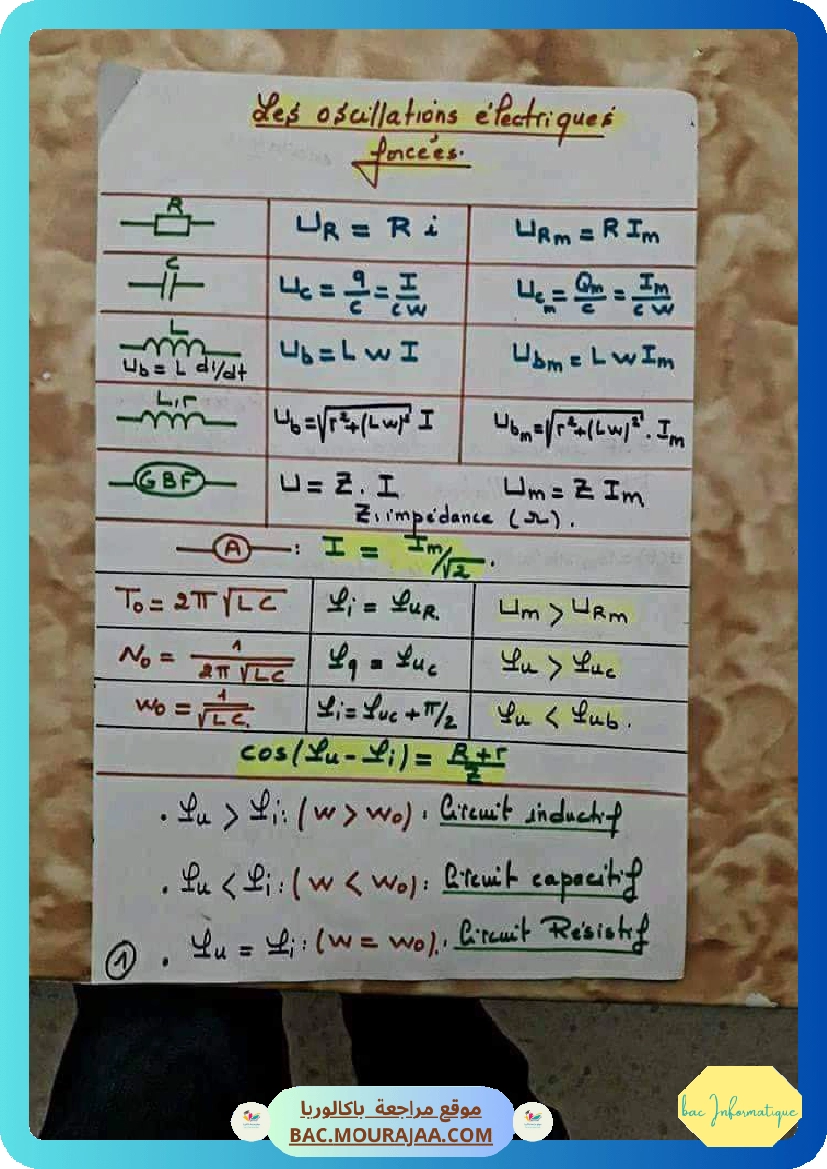 Les oscillations électriques
forcées.
R
U_R = R i
U_Rm = R I_m
C
U_C = q/C = I/(C W)
U_Cm = Q_m/C = I_m/(C W)
L
U_b = L di/dt
U_b = L W I
U_bm = L W I_m
L, r
U_b = √(r² + (L W)²) I
U_bm = √(r² + (L W)²) . I_m
GBF
U = Z . I
U_m = Z I_m
Z : impédance (Ω).
A : I = I_m/√2 .
T₀ = 2π √(LC)
φ_i = φ_uR
U_m > U_Rm
N₀ = 1/(2π √(LC))
φ_q = φ_uC
φ_u > φ_uC
W₀ = 1/√(LC)
φ_i = φ_uC + π/2
φ_u < φ_ub .
cos(φ_u - φ_i) = (R + r)/Z
. φ_u > φ_i : (W > W₀) : Circuit inductif
. φ_u < φ_i : (W < W₀) : Circuit capacitif
① . φ_u = φ_i : (W = W₀) : Circuit Résistif
موقع مراجعة باكالوريا
BAC.MOURAJAA.COM
bac Informatique